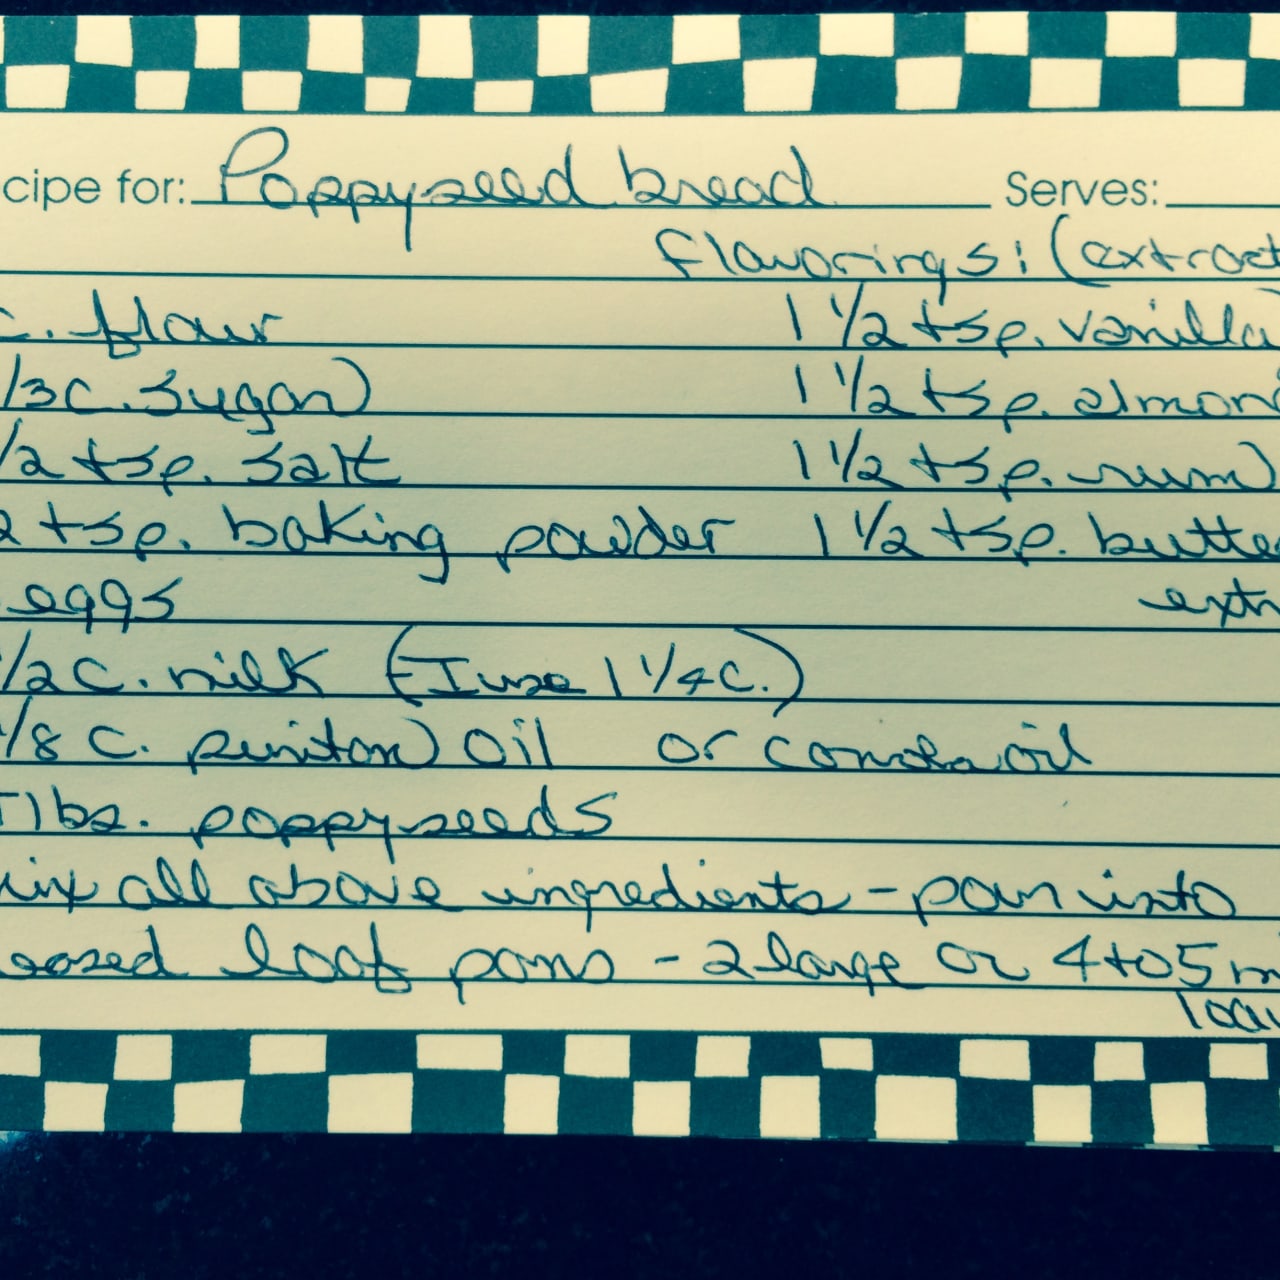 cipe for: Poppyseed bread Serves:
flavorings: (extract
c. flour 1 1/2 tsp. vanilla
/3 c. sugar 1 1/2 tsp. almond
/2 tsp. salt 1 1/2 tsp. rum
2 tsp. baking powder 1 1/2 tsp. butte
eggs extr
1/2 c. milk (I use 1 1/4 c.)
1/8 c. puritan oil or canola oil
Tlbs. poppyseeds
ix all above ingredients - pour into
eased loaf pans - 2 large or 4 to 5 m
loav